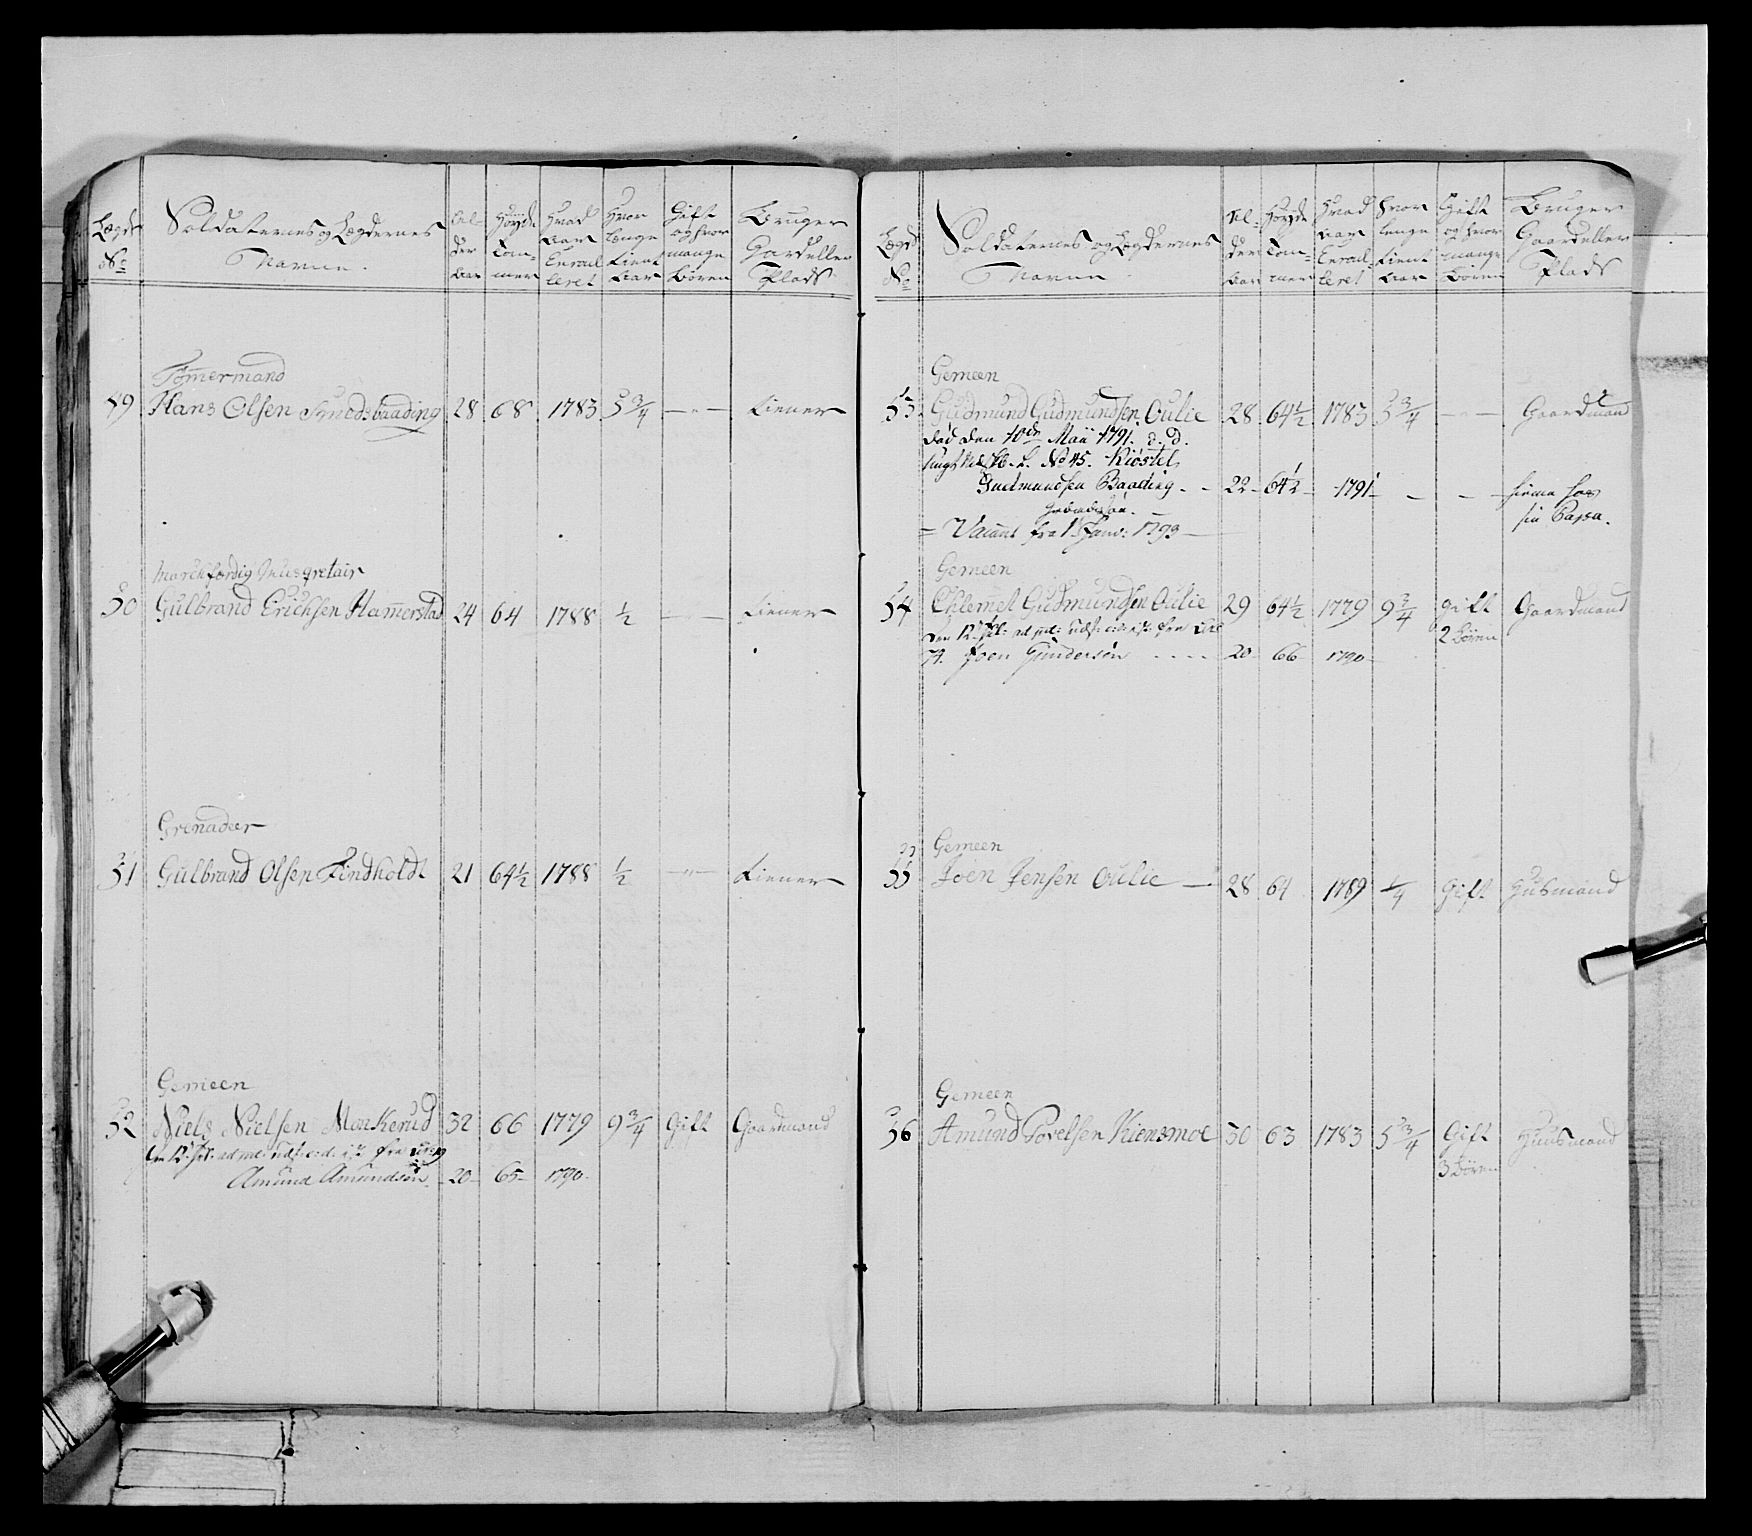 Lægds No
Soldaternes og Lægdernes Navne.
Al- der Aar
Høyde Tom- mer
Hvad Aar Enroul- leret
Hvor længe tient Aar
Gift og hvor mange Børen
Bruger Gaard eller Plads
Tømermand
49 Hans Olsen baading 28 68 1783 5 3/4 — " — tiener
Marchfærdig Musqvetair
50 Gulbrand Erichsen Hamerstad 24 64 1788 1/2 — " — tiener
Grenadeer
51 Gulbrand Olsen Findholdt 21 64 1/2 1788 1/2 — " — tiener
Gemeen
52 Niels Nielsen Monkerud 32 66 1779 9 3/4 Gift Gaardmand
fra
Amund Amundsøn 20 65 1790
Lægds No
Soldaternes og Lægdernes Navne
Al- der Aar
Høyde Tom- mer
Hvad Aar Enroul- leret
Hvor lenge tient Aar
Gift og hvor mange Børen
Bruger Gaard eller Plads
Gemeen
53 Gudmund Gudmundsen Oulie 28 64 1/2 1783 5 3/4 — " — Gaardmand
død den 10de Maii 1791.
No 45. Kiøstel
Gudmundsen Baading - - 22 64 1/2 1791 - - hiema hos
sin Papa.
= Vacant fra 1 Janv: 1793 —
Gemeen
54 Chlemet Gudmundsen Oulie 29 64 1/2 1779 9 3/4 gift Gaardmand
2 Børen
fra
Joen Gundersøn - - - - 20 66 1790
Gemeen
55 Joen Jensen Oulie — 28 64 1789 1/4 Gift Husmand
Gemeen
56 Amund Povelsen Kiensmoe 30 63 1783 5 3/4 Gift Huusmand
3 Børen